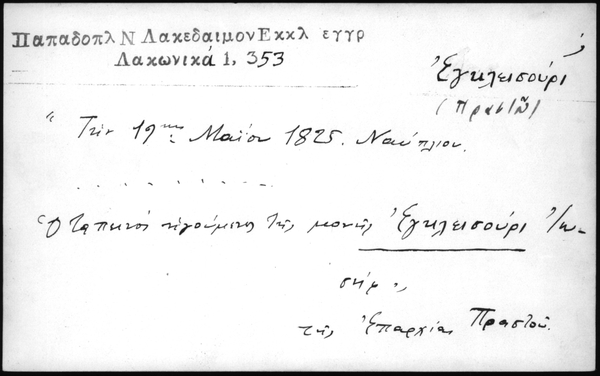 Παπαδοπλ Ν ΛακεδαιμονΕκκλ εγγρ
Λακωνικά 1, 353
Ἐγκλεισούρι
(Πραστοῦ)
" Τὴν 19ην Μαΐου 1825. Ναύπλιον.
. . . . . . . . .
Ὁ ταπεινός ἡγούμενος τῆς μονῆς Ἐγκλεισούρι Ἰω-
σήφ "
τῆς Ἐπαρχίας Πραστοῦ.